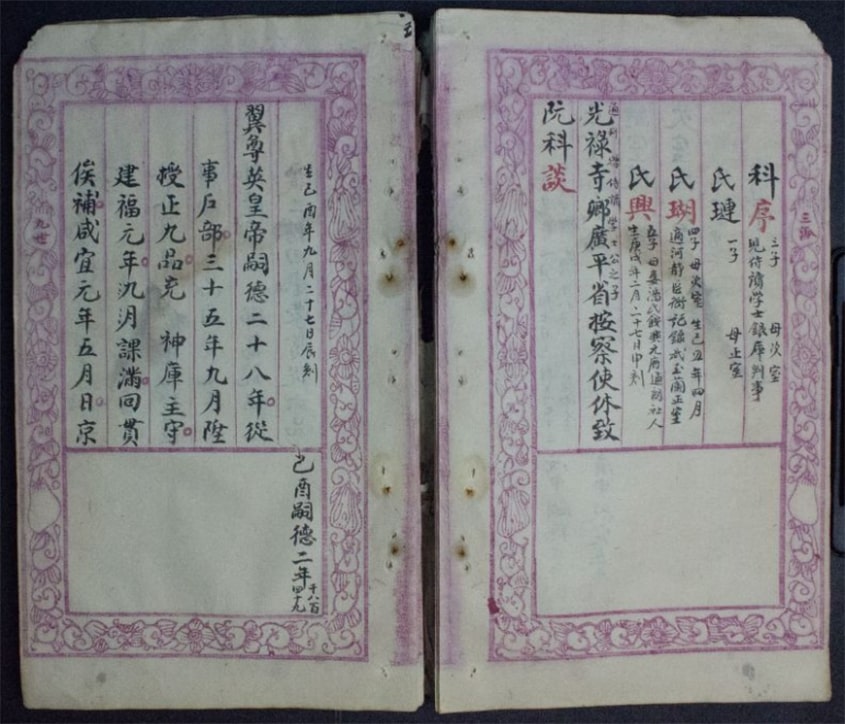 三派
科序
三子 母次室
見侍讀學士銀庫判事
氏璉
一子 母正室
氏瑚
四子 母次室 生己丑年四月
氏興
生庚戌年二月二十七日申刻
光祿寺卿廣平省按察使休致
阮科談
生己酉年九月二十七日辰刻
己酉嗣德二年
千八百
四十九
翼尊英皇帝嗣德二十八年從
事戶部三十五年九月陞
授正九品充 神庫主守
建福元年月課滿回貫
俟補咸宜元年五月日京
九世